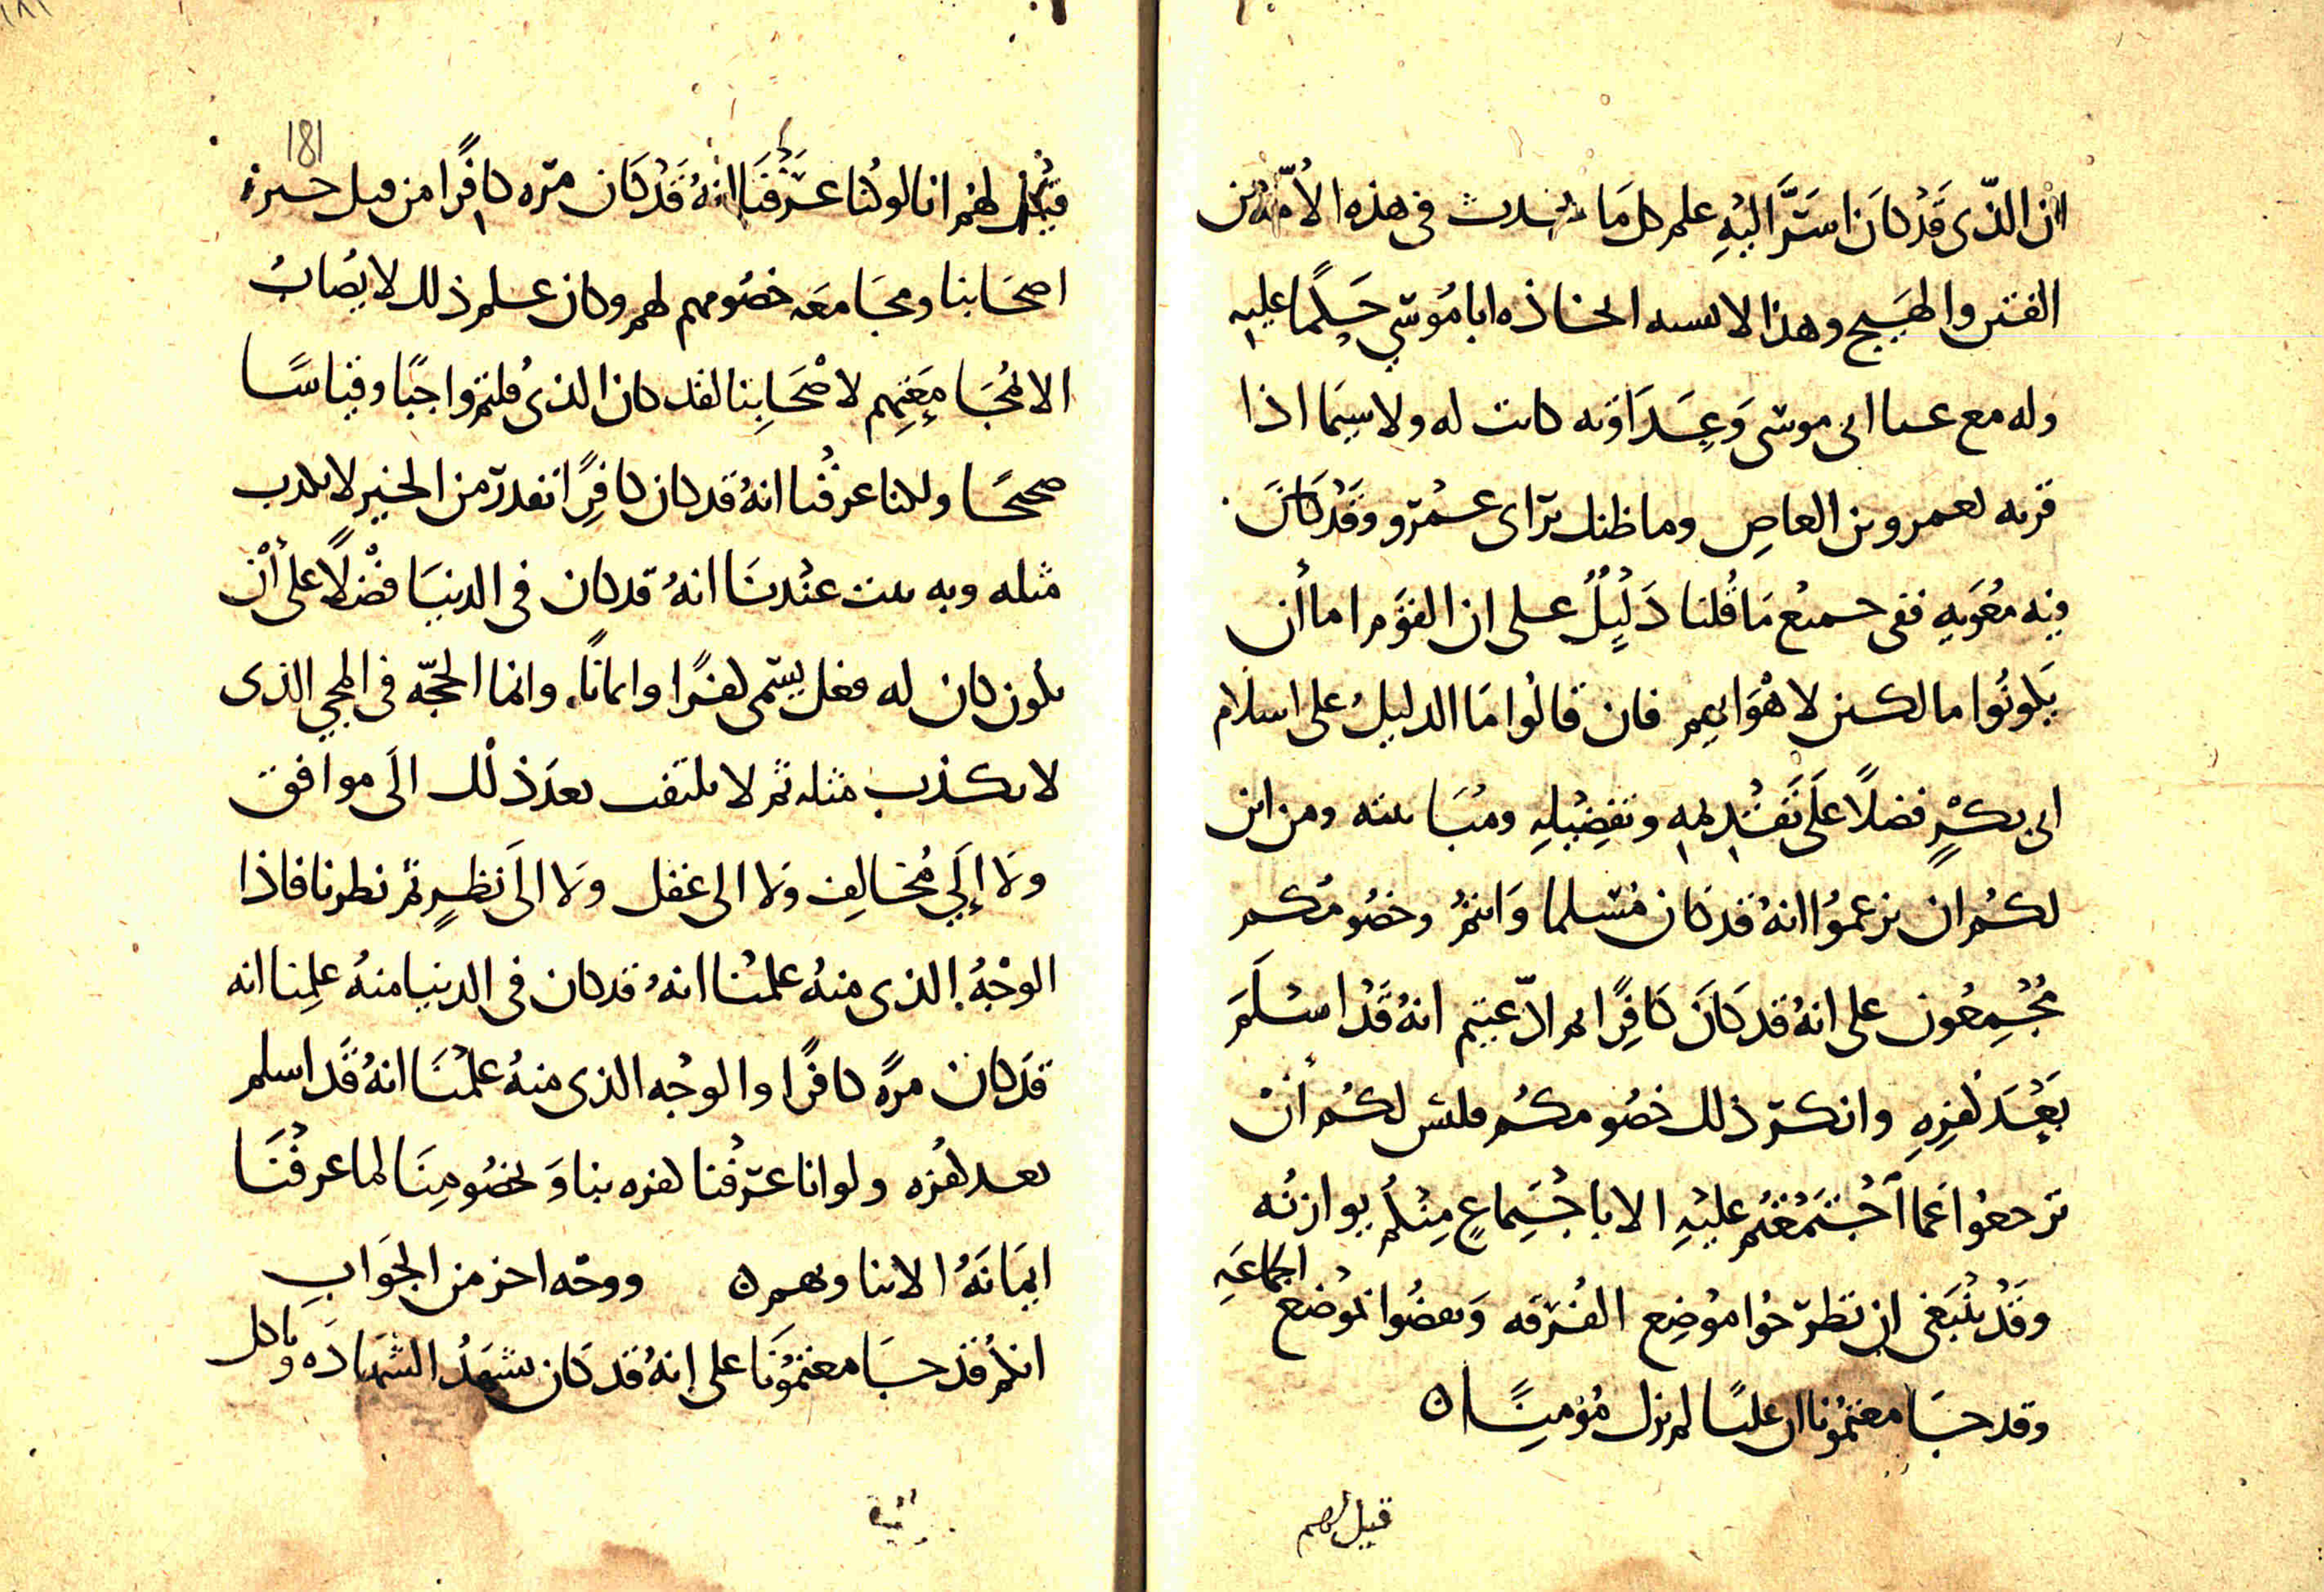 ان الذي قد كان استر اليه علم كل ما يحدث في هذه الأمة من
الفتن والهيج وهذا لا يشبه اتخاذه ابا موسى حكما عليه
وله مع عبا ابى موسى وعداوته كانت له ولا سيما اذا
قرنه بعمرو بن العاص وما ظنك براى عمرو وقد كان
فيه معويه ففى جميع ما قلنا دليل على ان القوم اما أن
يكونوا مالكين لاهوايهم فان قالوا ما الدليل على اسلام
ابى بكر فضلا على تقديمه وتفضيله ومباينته ومن اين
لكم ان تزعموا انه قد كان مسلما وانتم وخصومكم
مجمعون على انه قد كان كافرا ثم ادعيتم انه قد اسلم
بعد كفره وانكر ذلك خصومكم فليس لكم أن
ترجعوا عما اجتمعتم عليه الا باجتماع مثله يوازنه
وقد ينبغى ان تطرحوا موضع الفرقه وتعضوا بموضع الجماعه
وقد جامعتمونا ان عليا لم يزل مؤمنا ن
قيل لهم
181
قيل لهم انا لو كنا عرفنا انه قد كان مره كافرا من قبل خبره
اصحابنا ومجامعه خصومهم لهم وكان علم ذلك لا يصاب
الا بمجامعتهم لاصحابنا لقد كان الذي قلتم واجبا وقياسا
صحيحا ولكنا عرفنا انه قد كان كافرا نعدت من الخبر لا يكذب
مثله وبه يثبت عندنا انه قد كان في الدنيا فضلا على أن
يكون كان له فعل يسمى كفرا وايمانا. وانما الحجه في المجي الذى
لا يكذب مثله ثم لا يلتفت بعد ذلك الى موافق
ولا إلى مخالف ولا الى عقل ولا الى نظير ثم نظرنا فاذا
الوجه الذى منه علمنا انه قد كان في الدنيا منه علمنا انه
قد كان مرة كافرا والوجه الذى منه علمنا انه قد اسلم
بعد كفره ولو انا عرفنا كفره بنا وبخصومنا لما عرفنا
ايمانه الا بنا وبهم ن ووجه اخر من الجواب
انكم قد جامعتمونا على انه قد كان يشهد الشهاده وياكل